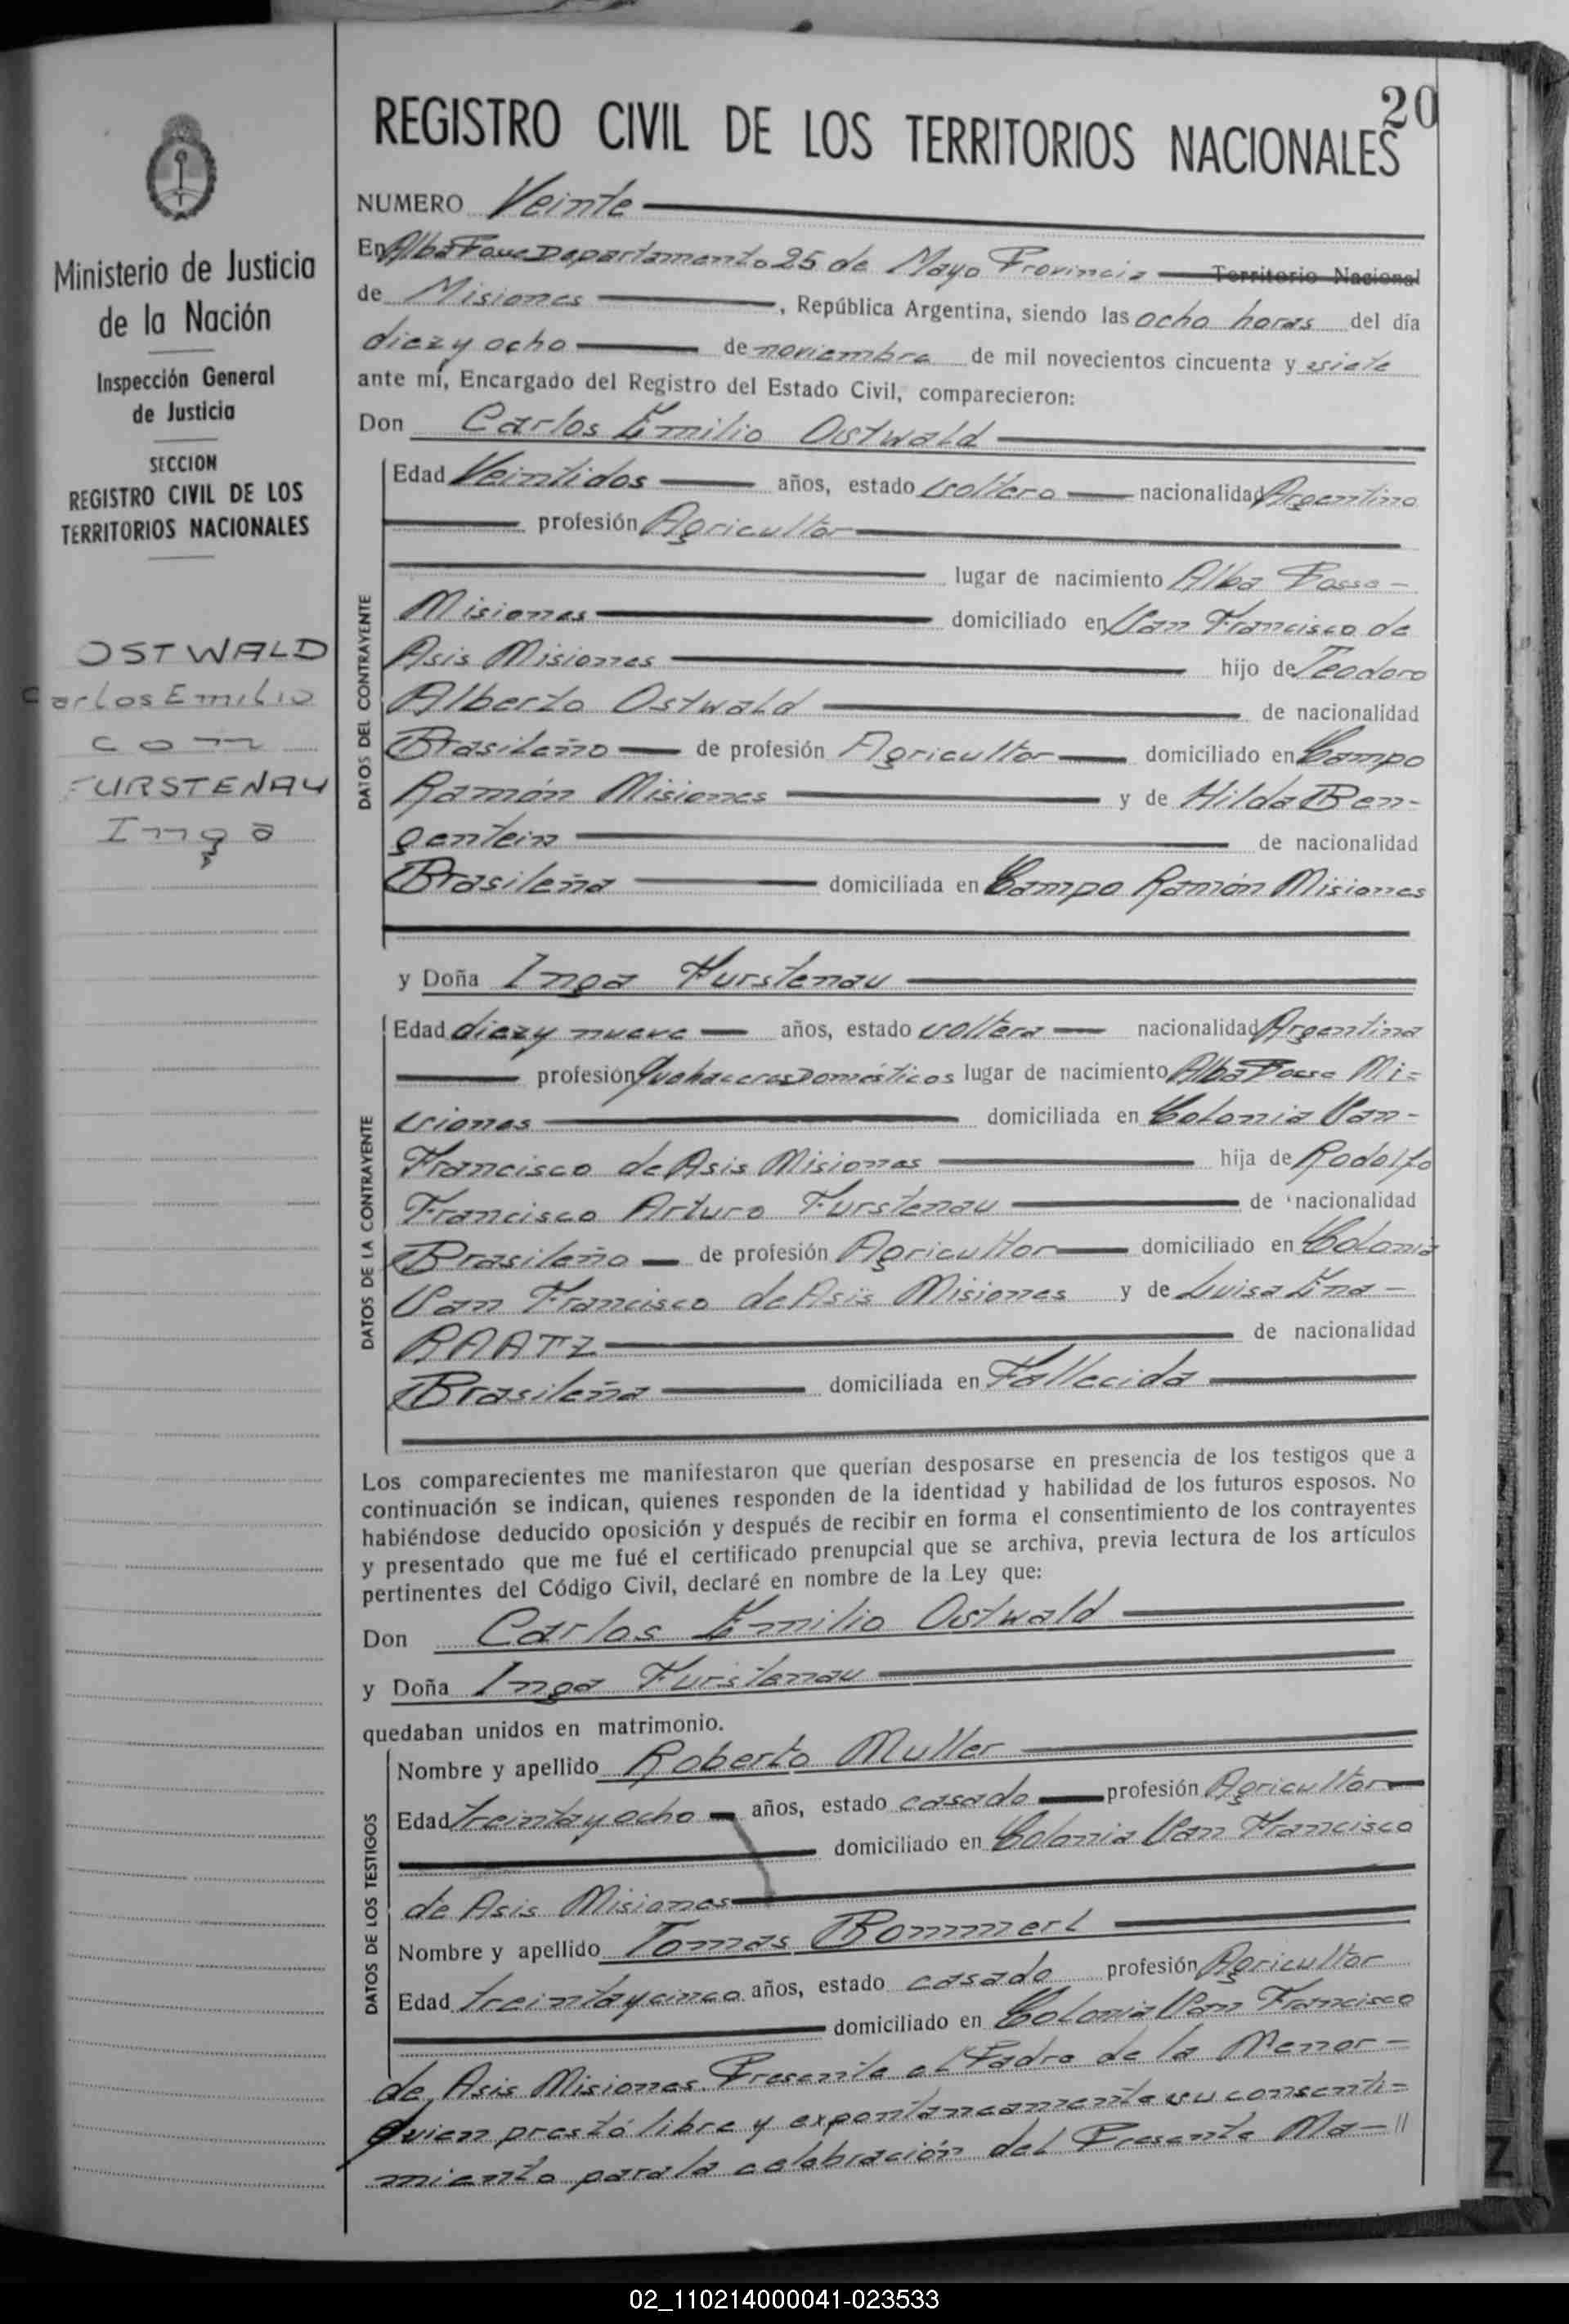 20
REGISTRO CIVIL DE LOS TERRITORIOS NACIONALES
Ministerio de Justicia
de la Nación
Inspección General
de Justicia
SECCION
REGISTRO CIVIL DE LOS
TERRITORIOS NACIONALES
OSTWALD
Carlos Emilio
con
FURSTENAU
Inga
NUMERO Veinte
En Alba Posse Departamento 25 de Mayo Provincia Territorio Nacional
de Misiones, República Argentina, siendo las ocho horas del día
diez y ocho de noviembre de mil novecientos cincuenta y siete
ante mí, Encargado del Registro del Estado Civil, comparecieron:
Don Carlos Emilio Ostwald
DATOS DEL CONTRAYENTE
Edad Veintidos años, estado soltero nacionalidad Argentino
profesión Agricultor
lugar de nacimiento Alba Posse -
Misiones domiciliado en San Francisco de
Asis Misiones hijo de Teodoro
Alberto Ostwald de nacionalidad
Brasileño de profesión Agricultor domiciliado en Campo
Ramón Misiones y de Hilda Ben-
gentein de nacionalidad
Brasileña domiciliada en Campo Ramón Misiones
y Doña Inga Furstenau
DATOS DE LA CONTRAYENTE
Edad diez y nueve años, estado soltera nacionalidad Argentina
profesión Quehaceres Domésticos lugar de nacimiento Alba Posse Mi=
siones domiciliada en Colonia San -
Francisco de Asis Misiones hija de Rodolfo
Francisco Arturo Furstenau de nacionalidad
Brasileño de profesión Agricultor domiciliado en Colonia
San Francisco de Asis Misiones y de Luisa Ema -
RAATZ de nacionalidad
Brasileña domiciliada en Fallecida
Los comparecientes me manifestaron que querían desposarse en presencia de los testigos que a
continuación se indican, quienes responden de la identidad y habilidad de los futuros esposos. No
habiéndose deducido oposición y después de recibir en forma el consentimiento de los contrayentes
y presentado que me fué el certificado prenupcial que se archiva, previa lectura de los artículos
pertinentes del Código Civil, declaré en nombre de la Ley que:
Don Carlos Emilio Ostwald
y Doña Inga Furstenau
quedaban unidos en matrimonio.
DATOS DE LOS TESTIGOS
Nombre y apellido Roberto Muller
Edad treinta y ocho años, estado casado profesión Agricultor
domiciliado en Colonia San Francisco
de Asis Misiones
Nombre y apellido Tomas Bommert
Edad treinta y cinco años, estado casado profesión Agricultor
domiciliado en Colonia San Francisco
de Asis Misiones Presente el Padre de la Menor -
Quien prestó libre y expontaneamente su consenti=
miento para la celebración del Presente Ma-//
02_110214000041-023533